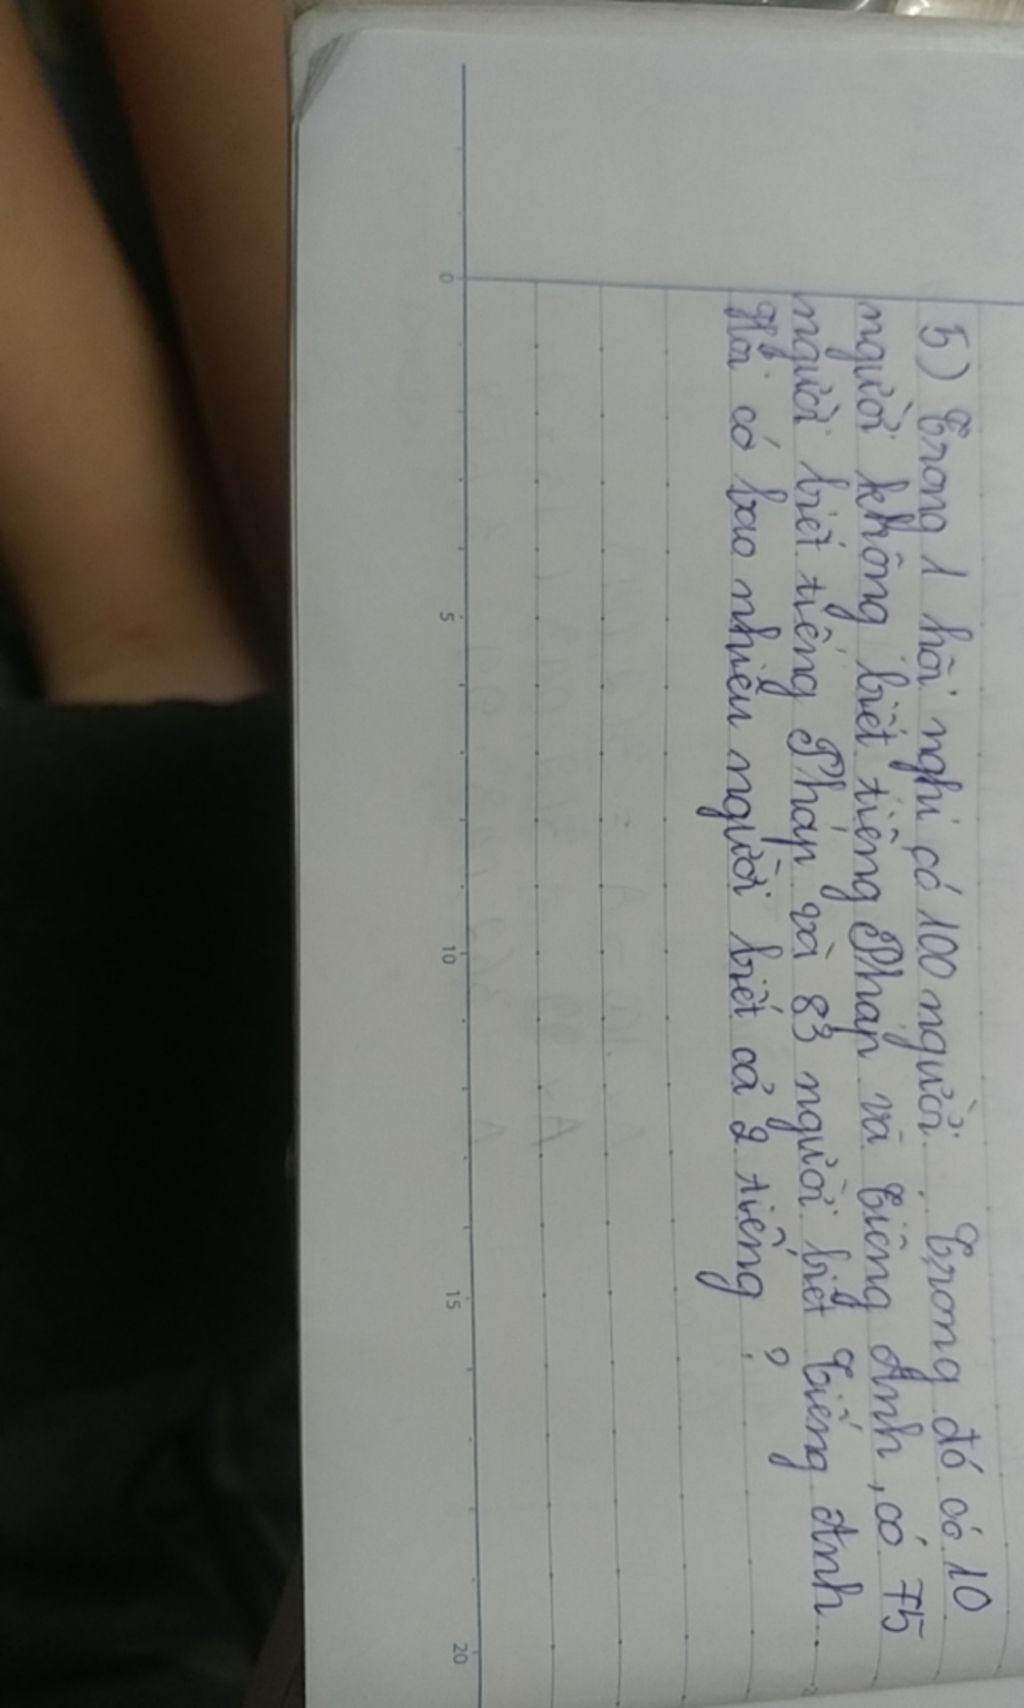 5) Trong 1 hội nghị có 100 người. Trong đó có 10
người không biết tiếng Pháp và Tiếng Anh, có 75
người biết tiếng Pháp và 83 người biết Tiếng Anh.
Hỏi có bao nhiêu người biết cả 2 tiếng ?
0 5 10 15 20